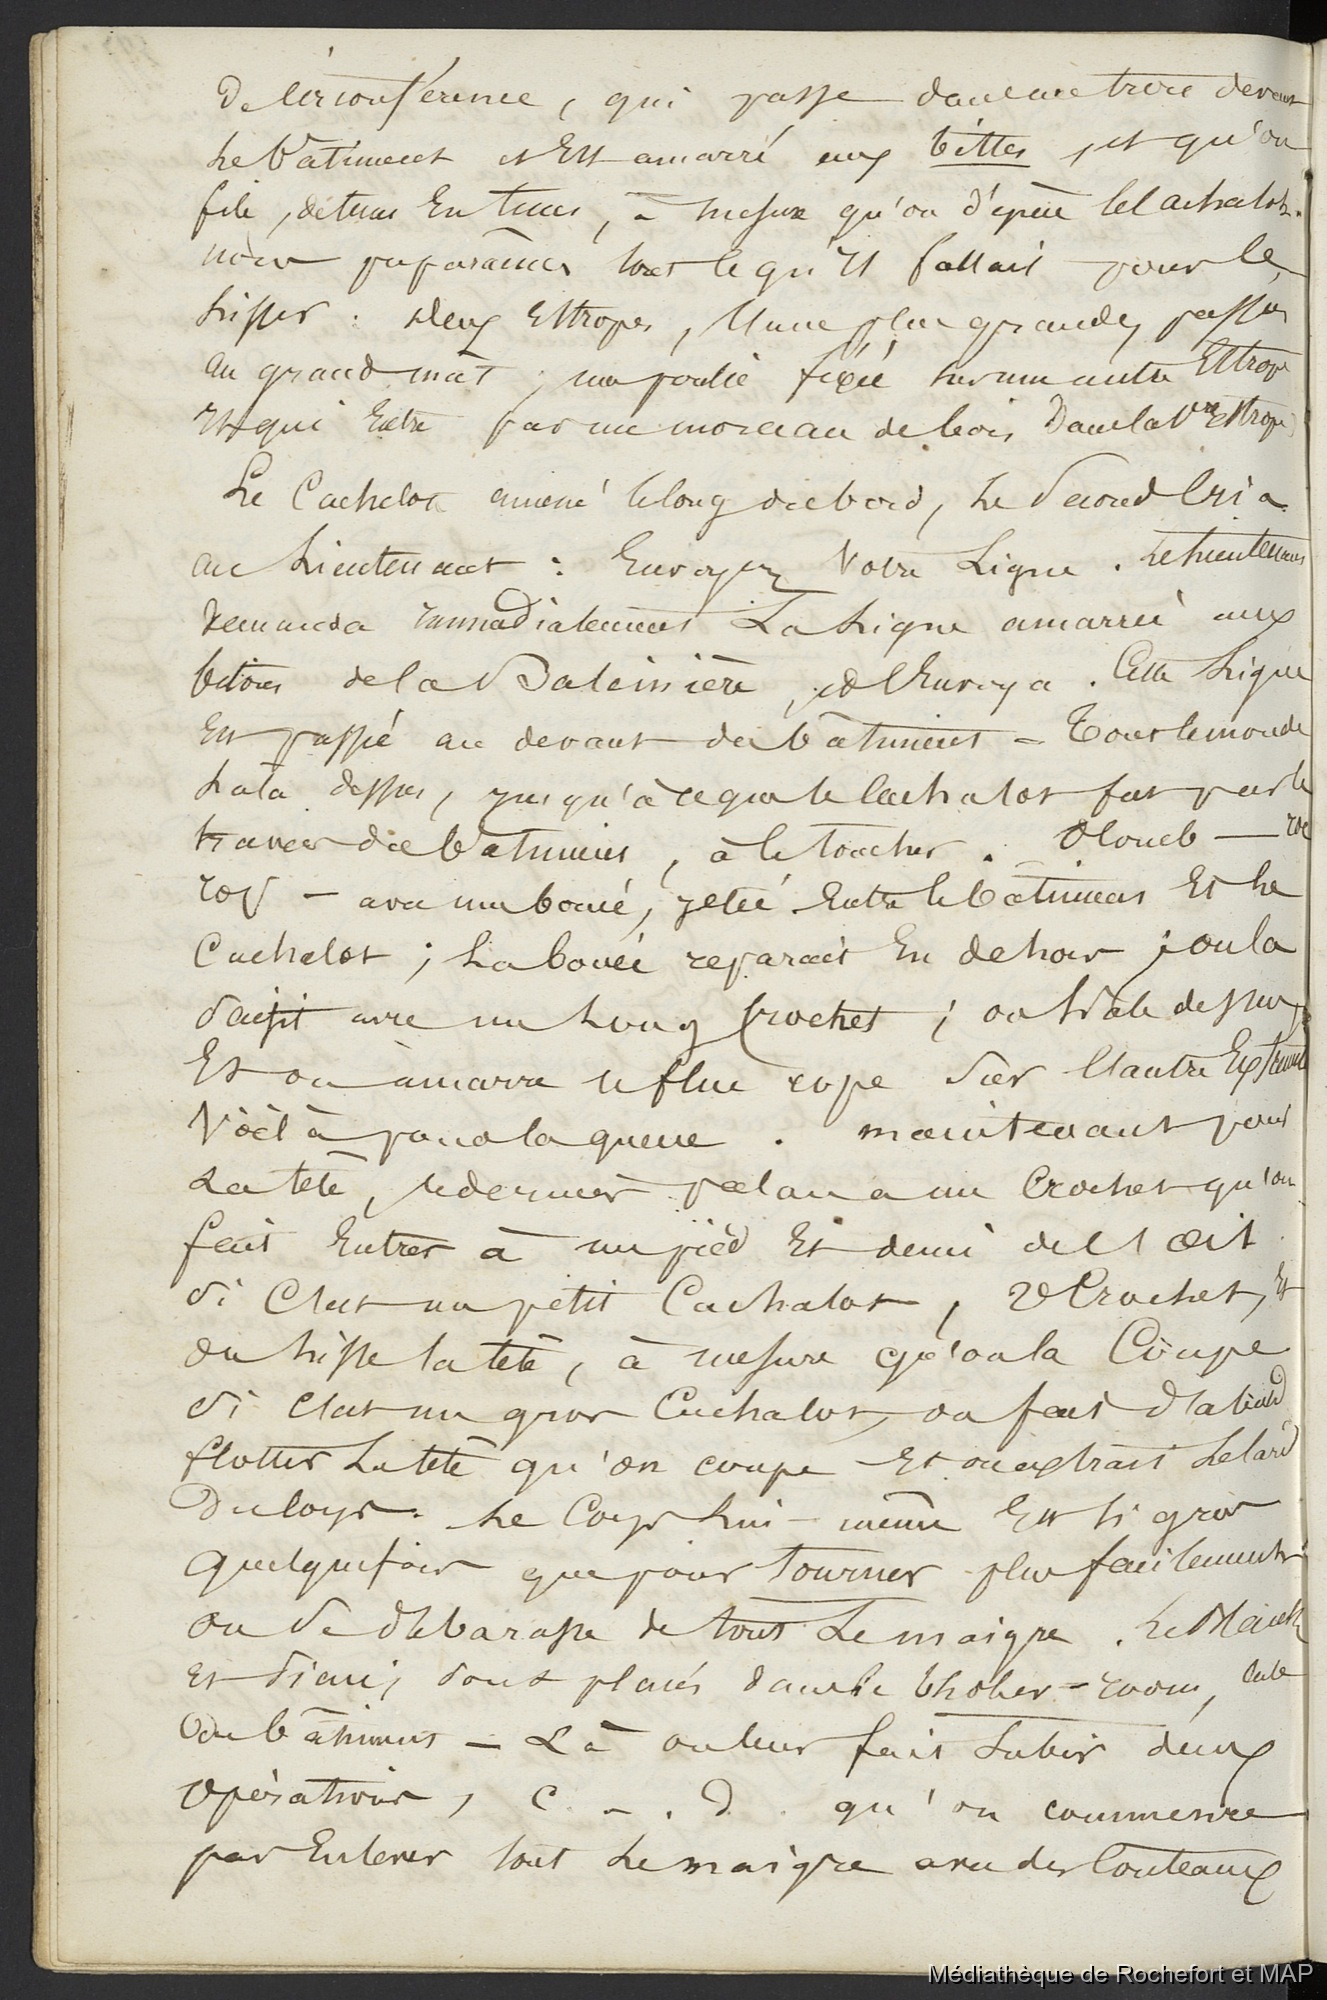 De circonférence, qui passe dans une trou devant
Le bâtiment et Est amarré aux bittes, et qu'on
file, de tems En tems, à mesure qu'on dépèce le Cachalot.
nous préparâmes tout ce qu'Il fallait pour le
hisser : deux Estropes, l'une plus grande, passée
au grand mât ; une poulie fixée sur une autre Estrope
Et qui Entre par un morceau de bois Dans la 1re Estrope
Le Cachalot amené le long du bord, Le Second Cria
au Lieutenant : Envoyez Votre Ligne. Le Lieutenant
demanda immédiatement La Ligne amarrée aux
bitons de la Baleinière, et l'Envoya. Cette Ligne
Est passée au devant du bâtiment - Tout le monde
hala dessus, jusqu'à ce que le Cachalot fut par le
travers du bâtiment, à le toucher.
avec une bouée, jetée Entre le bâtiment Et Le
Cachalot ; La bouée reparait En dehors ; on la
Saisit avec un Long Crochet ; on hâle dessus
Et on amarre le fluc rope Sur l'autre Extrémité
Voilà pour la queue. maintenant pour
La tête, le dernier palan a un Crochet qu'on
fait Entrer à un pied Et demi de l'œil.
Si C'est un petit Cachalot, Crochet, Et
on hisse la tête, à mesure qu'on la Coupe
Si C'est un gros Cachalot, on fait d'abord
flotter La tête qu'on coupe Et on extrait Le lard
Du Corps. Le Corps Lui-même Est si gros
quelquefois que pour Tourner plus facilement
on Se débarasse de tout Le maigre. Le
Et Sont placés dans le bloher-room, cale
Du bâtiment - Là on leur fait Subir deux
opérations, C. - . D. qu'on commence
par Enlever tout Le maigre avec des Couteaux
Médiathèque de Rochefort et MAP